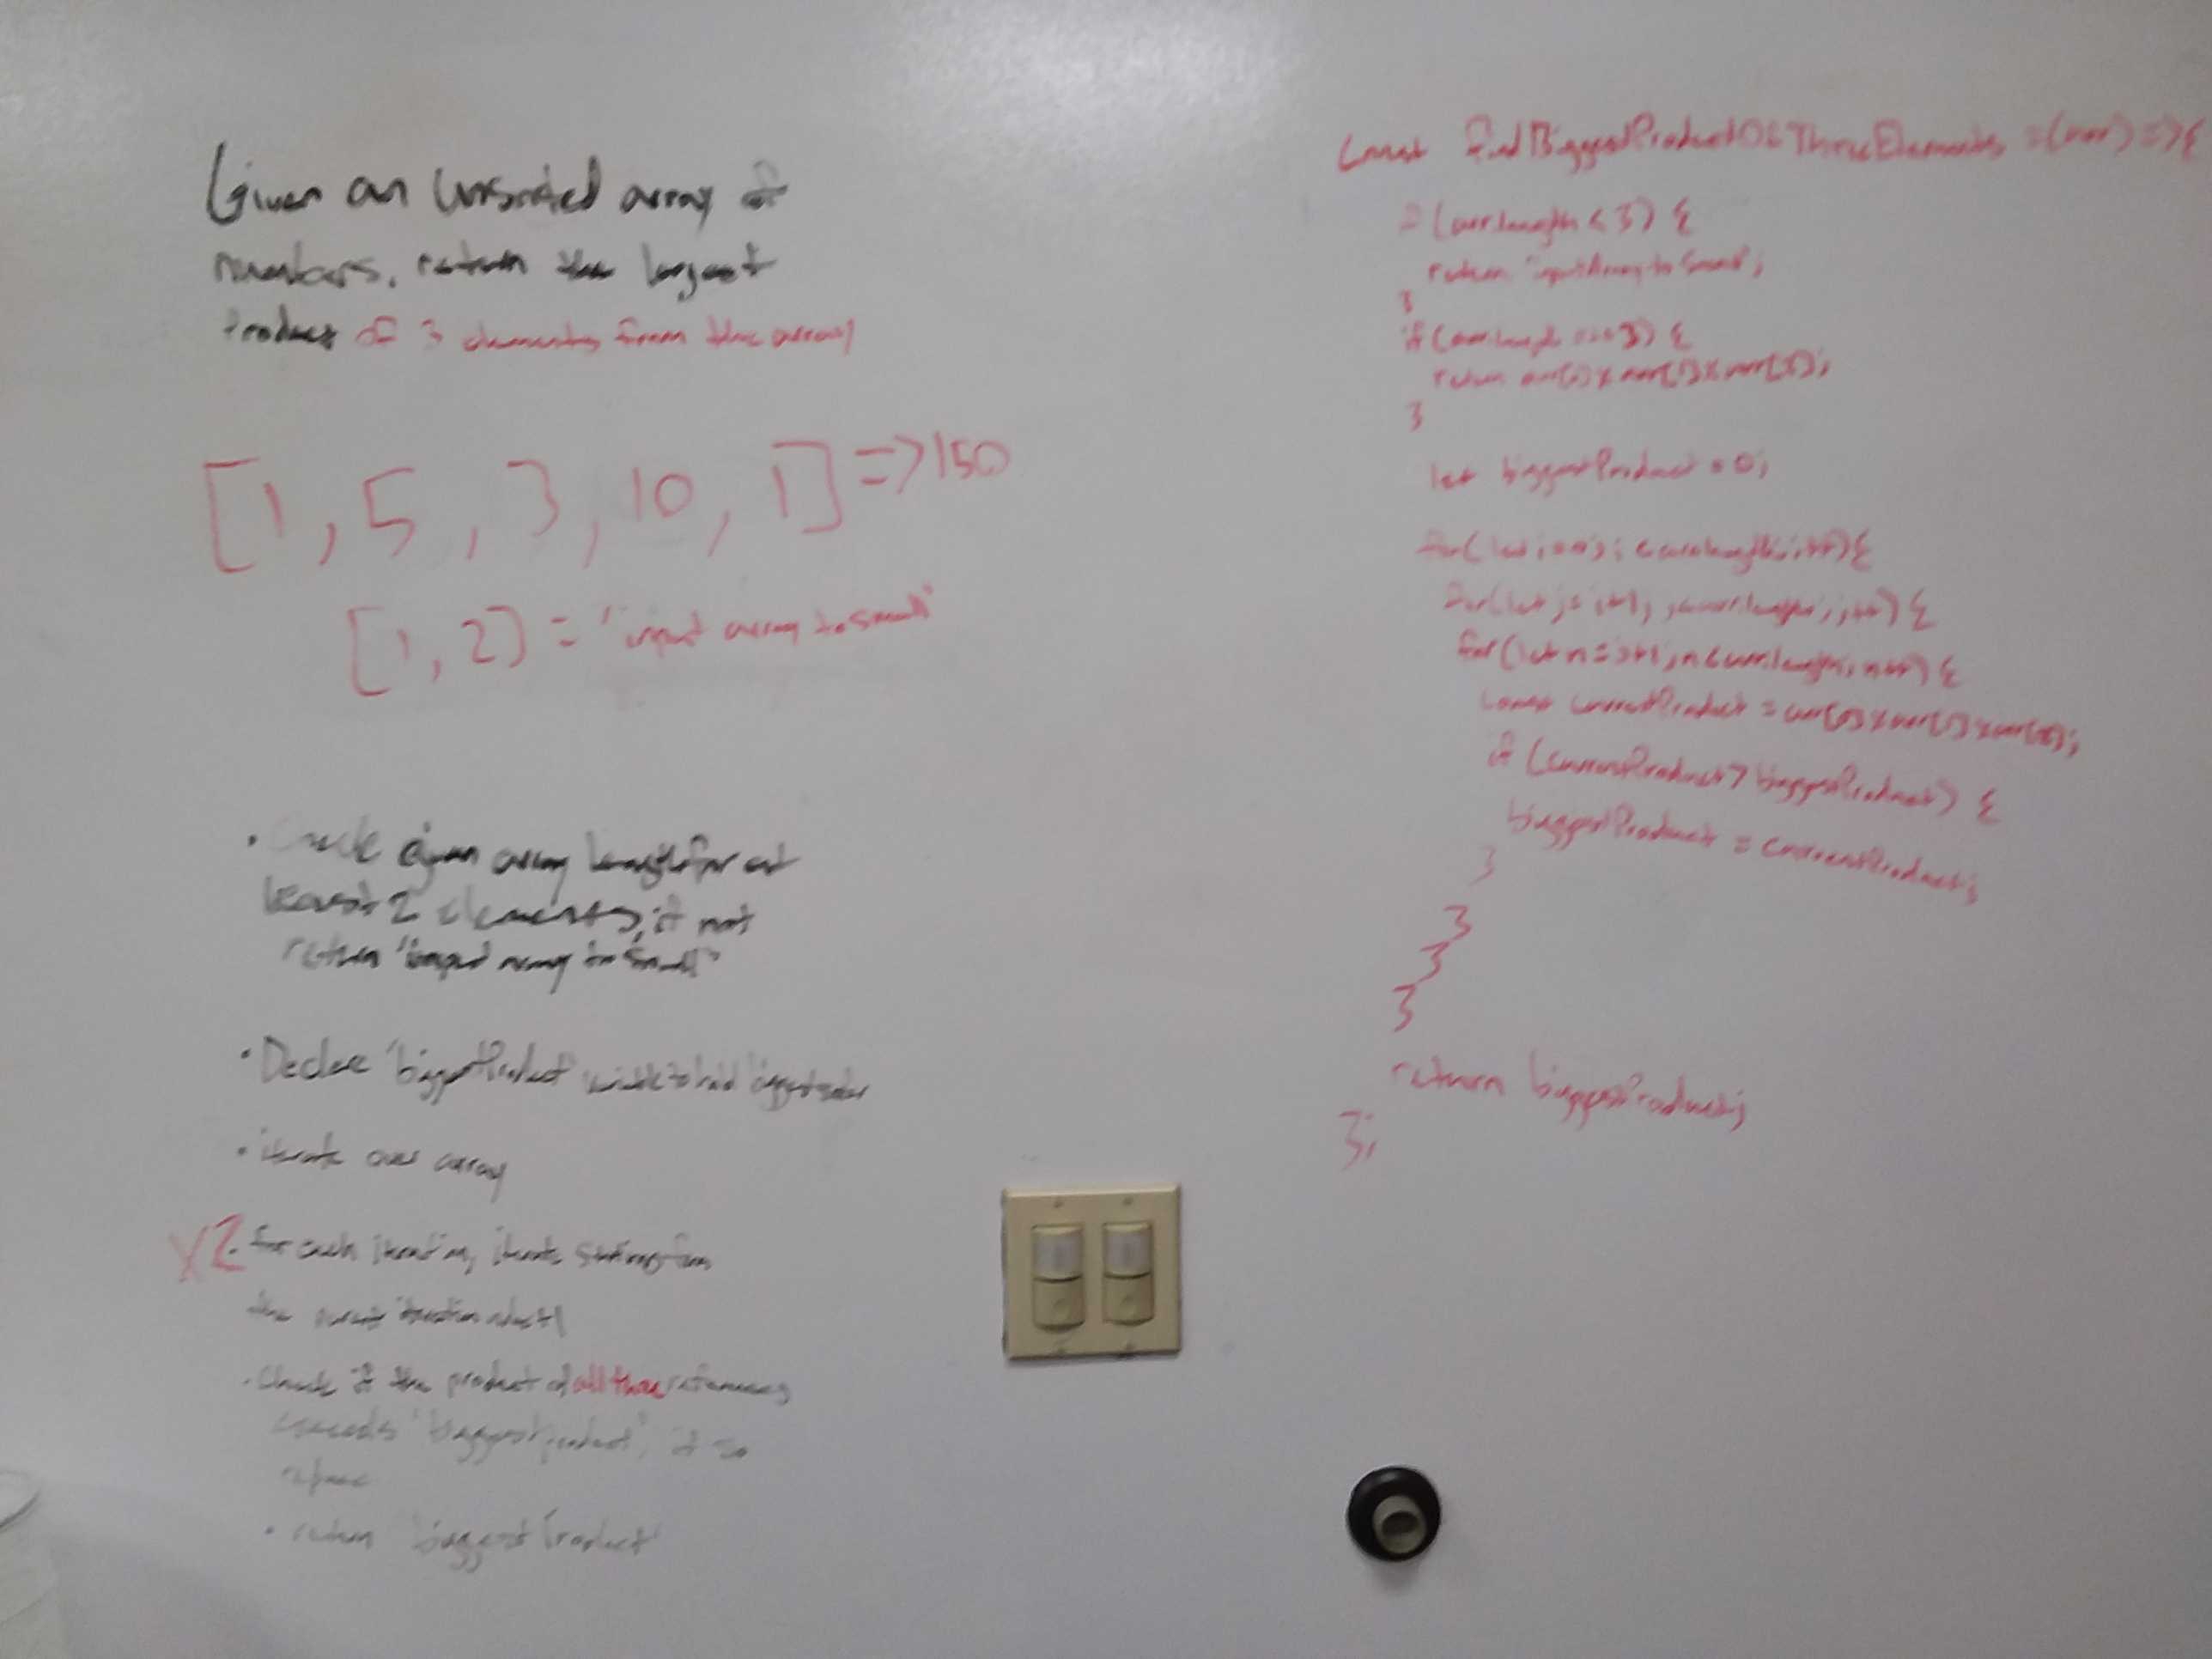 Given an unsorted array of
numbers, return the largest
product of 3 elements from the array
[1, 5, 3, 10, 1] => 150
[1, 2] = "input array to small"
• Check given array length for at
least 2 elements, if not
return "input array to small"
• Declare 'biggestProduct' variable to hold biggest
• iterate over array
X2 • for each iteration, iterate starting from
the current iteration
• Check if the product of all three references
exceeds 'biggestproduct', if so
• return 'biggestProduct'
const findBiggestProductOfThreeElements = (arr) => {
if (arr.length < 3) {
return 'input Array to small';
}
if (arr.length === 3) {
return arr[0] * arr[1] * arr[2];
}
let biggestProduct = 0;
for(let i=0; i < arr.length; i++){
for(let j = i+1; j < arr.length; j++) {
for(let n = j+1; n < arr.length; n++) {
const currentProduct =
if (currentProduct > biggestProduct) {
biggestProduct = currentProduct;
}
}
}
}
return biggestProduct;
};